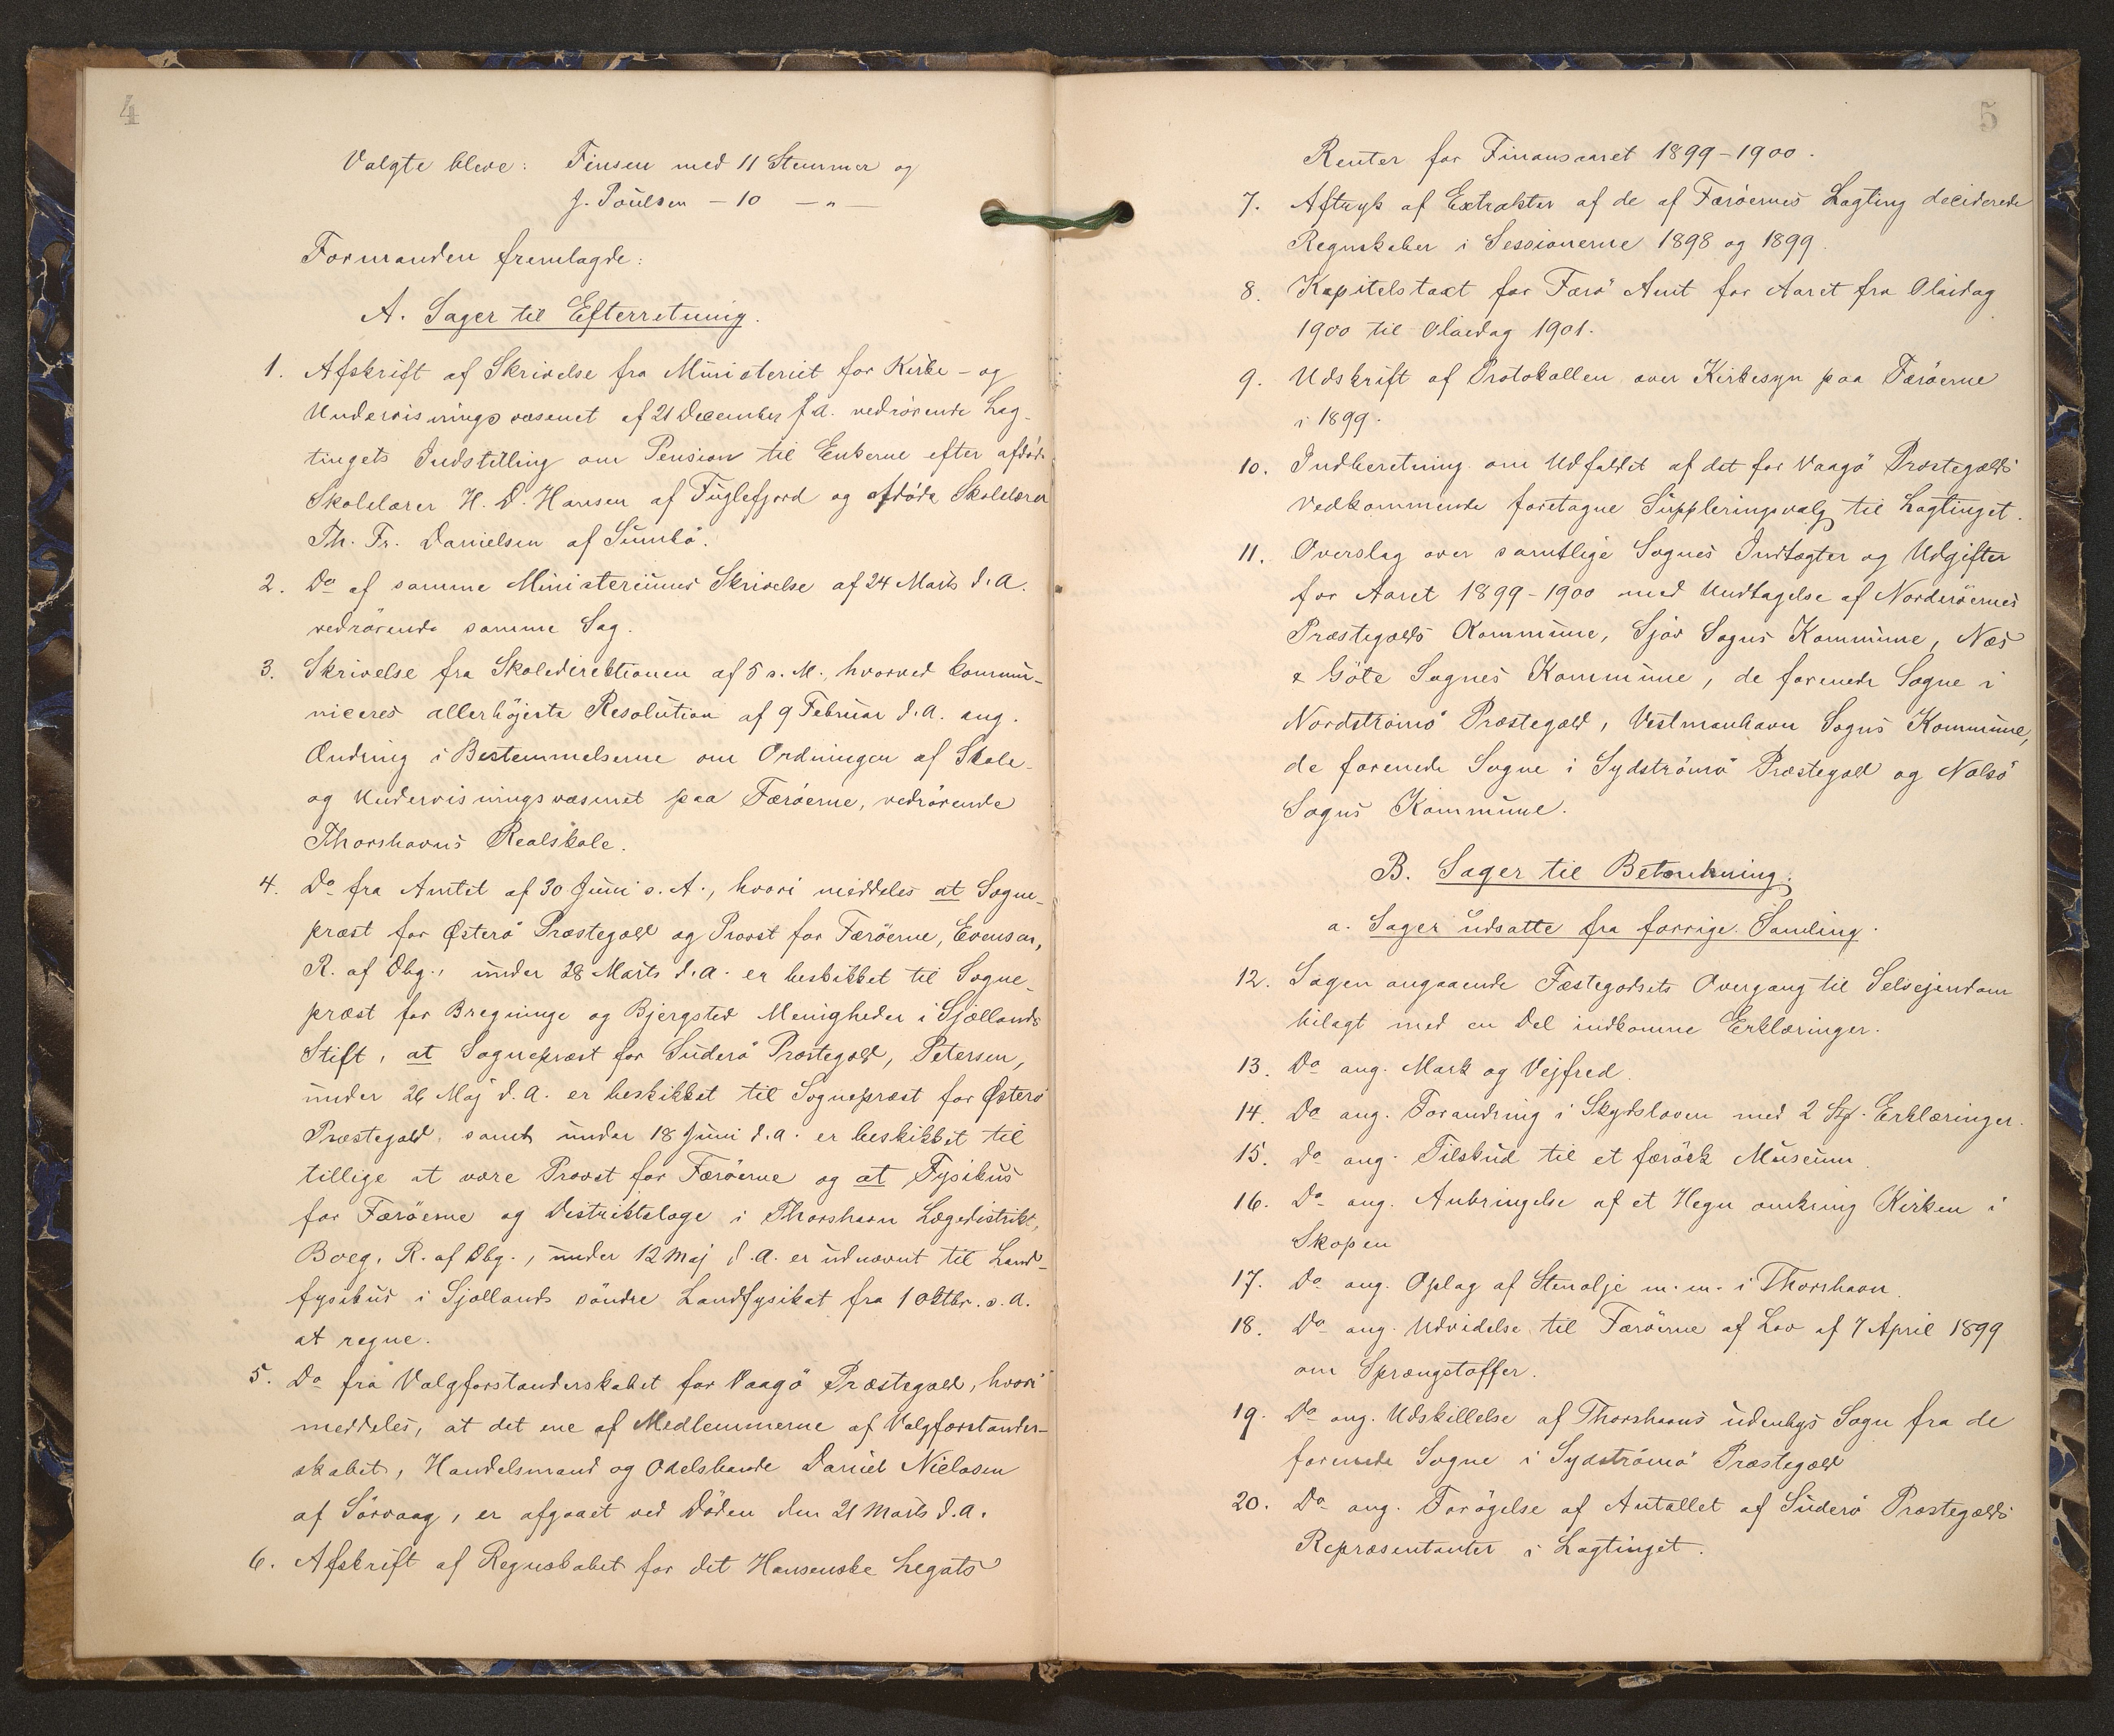 4
Valgte bleve: Finsen med 11 Stemmer og
J. Poulsen – 10 – " –
Formanden fremlagde:
A. Sager til Efterretning.
1. Afskrift af Skrivelse fra Ministeriet for Kirke- og
Undervisningsvæsenet af 21 December f. A. vedrörende Lag-
tingets Indstilling om Pension til Enkerne efter afdöde
Skolelærer H. D. Hansen af Fuglefjord og afdöde Skolelærer
Th. Fr. Danielsen af Sumbö.
2. Do af samme Ministeriums Skrivelse af 24 Marts d. A.
vedrörende samme Sag.
3. Skrivelse fra Skoledirektionen af 5 s. M., hvorved kommu-
niceres allerhöjeste Resolution af 9 Februar d. A. ang.
Ændring i Bestemmelserne om Ordningen af Skole-
og Undervisningsvæsenet paa Færöerne, vedrörende
Thorshavns Realskole.
4. Do fra Amtet af 30 Juni s. A., hvori meddeles at Sogne-
præst for Østerö Præstegæld og Provst for Færöerne, Evensen,
R. af Dbg., under 28 Marts d. A. er beskikket til Sogne-
præst for Bregninge og Bjergsted Menigheder i Sjællands
Stift, at Sognepræst for Suderö Præstegæld, Petersen,
under 26 Maj d. A. er beskikket til Sognepræst for Østerö
Præstegæld, samt under 18 Juni d. A. er beskikket til
tillige at være Provst for Færöerne og at Fysikus
for Færöerne og Distriktslæge i Thorshavn Lægedistrikt,
Boeg, R. af Dbg., under 12 Maj d. A. er udnævnt til Land-
fysikus i Sjællands söndre Landfysikat fra 1 Oktbr. s. A.
at regne.
5. Do fra Valgforstanderskabet for Vaagö Præstegæld, hvori
meddeles, at det ene af Medlemmerne af Valgforstander-
skabet, Handelsmand og Odelsbonde Daniel Nielasen
af Sörvaag, er afgaaet ved Döden den 21 Marts d. A.
6. Afskrift af Regnskabet for det Hansenske Legats
5
Renter for Finansaaret 1899-1900.
7. Aftryk af Extrakter af de af Færöernes Lagting deciderede
Regnskaber i Sessionerne 1898 og 1899.
8. Kapitelstaxt for Færö Amt for Aaret fra Olaidag
1900 til Olaidag 1901.
9. Udskrift af Protokollen over Kirkesyn paa Færöerne
i 1899.
10. Indberetning om Udfaldet af det for Vaagö Præstegælds
Vedkommende foretagne Suppleringsvalg til Lagtinget.
11. Overslag over samtlige Sognes Indtægter og Udgifter
for Aaret 1899-1900 med Undtagelse af Norderöernes
Præstegælds Kommune, Sjöv Sogns Kommune, Næs
& Göte Sognes Kommune, de forenede Sogne i
Nordströmö Præstegæld, Vestmanhavn Sogns Kommune,
de forenede Sogne i Sydströmö Præstegæld og Nolsö
Sogns Kommune.
B. Sager til Betænkning.
a. Sager udsatte fra forrige Samling.
12. Sagen angaaende Fæstegodsets Overgang til Selvejendom
bilagt med en Del indkomne Erklæringer.
13. Do ang. Mark og Vejfred.
14. Do ang. Forandring i Skydsloven med 2 Stk. Erklæringer.
15. Do ang. Tilskud til et færösk Museum.
16. Do ang. Anbringelse af et Hegn omkring Kirken i
Skopen
17. Do ang. Oplag af Stenolje m. m. i Thorshavn.
18. Do ang. Udvidelse til Færöerne af Lov af 7 April 1899
om Sprængstoffer.
19. Do ang. Udskillelse af Thorshavns udenbys Sogn fra de
forenede Sogne i Sydströmö Præstegæld
20. Do ang. Forögelse af Antallet af Suderö Præstegælds
Repræsentanter i Lagtinget.